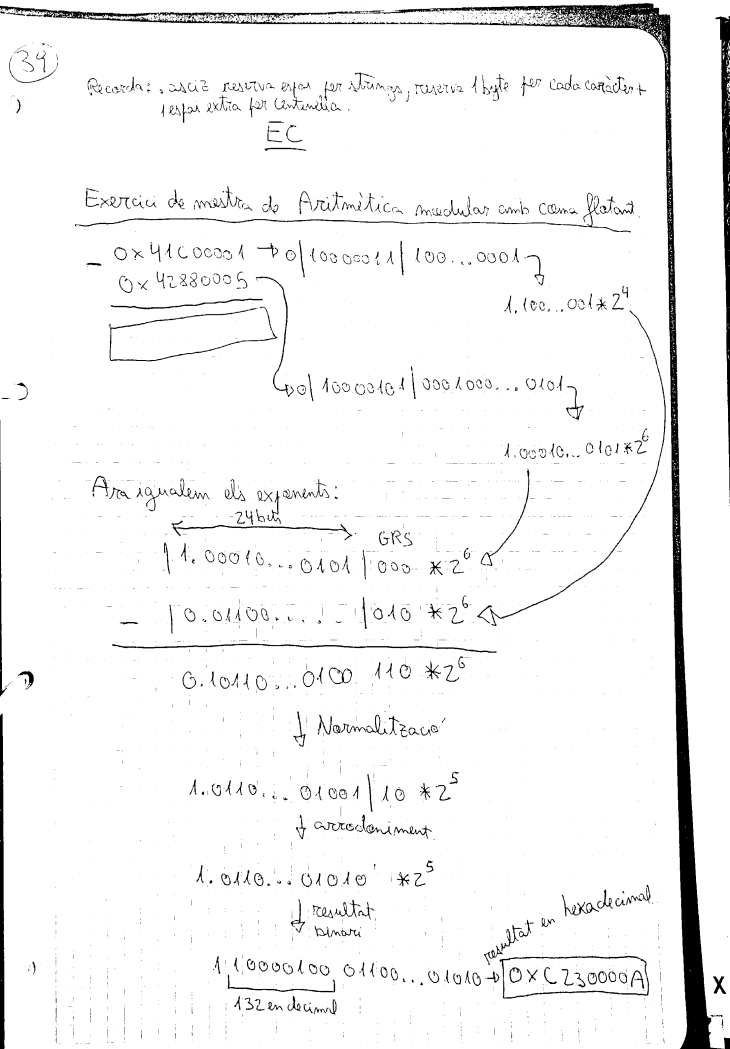 39
Recorda: .asciz reserva espai per strings, reserva 1 byte per cada caràcter +
1 espai extra per centinella.
EC
Exercici de mostra de Aritmètica modular amb coma flotant.
- 0x41C00001 → 0|10000011|100...0001
0x42880005
1.100...001*2^4
0|10000101|0001000...0101
1.00010...0101*2^6
Ara igualem els exponents:
24 bits
GRS
|1.00010...0101|000 *2^6
- |0.01100......|010 *2^6
0.10110...0100 110 *2^6
↓ Normalització
1.0110...01001|10 *2^5
↓ arrodoniment
1.0110...01010 *2^5
↓ resultat
binari
resultat en hexadecimal
1 10000100 01100...01010 → 0XC230000A
132 en decimal
X